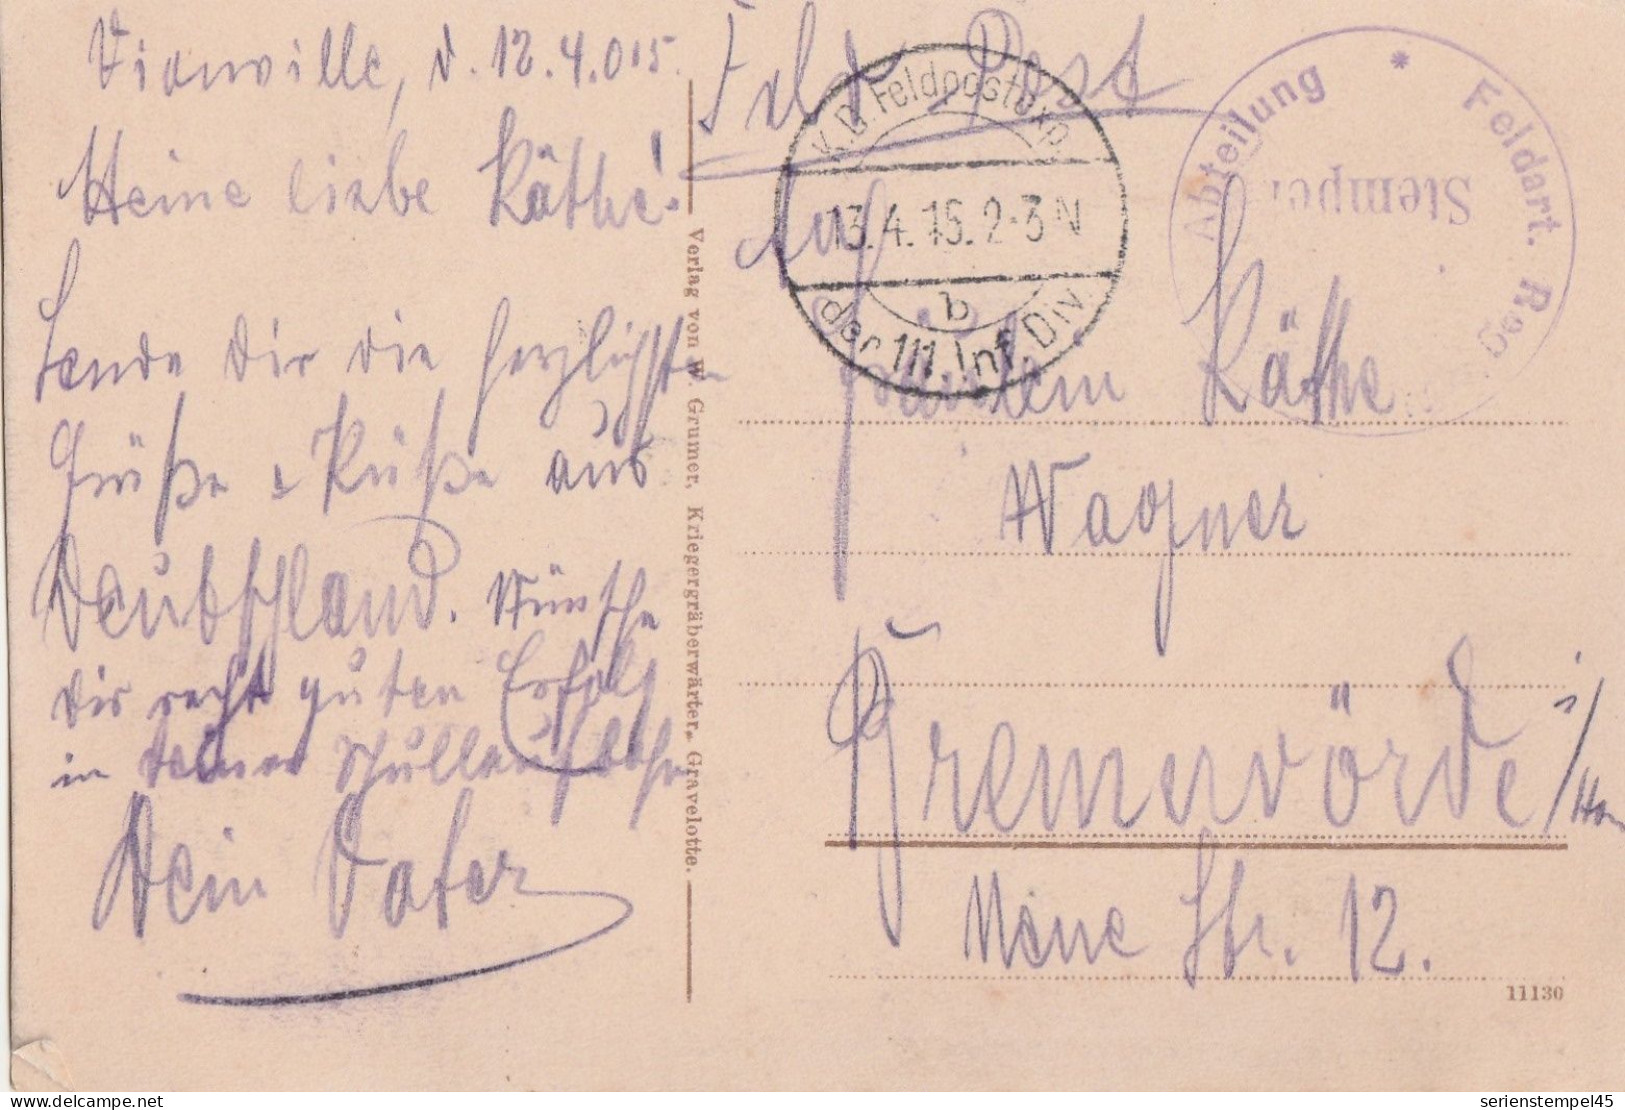 Vionville, d. 12.4.015.
Meine liebe Käthe!
Sende Dir die herzlichsten
Grüße & Küße aus
Deutschland. Wünsche
Dir recht guten Erfolg
in deiner Schullaufbahn
Dein Vater
Verlag von W. Grumer, Kriegergräberwärter, Gravelotte.
Feld Post
K.D. Feldpostexp.
13.4.15. 2-3 N
b
der 111. Inf. Div.
Abteilung * Feldart. Reg
Stempel
An
Fräulein Käthe
Wagner
Bremervörde i/Han
Neue Str. 12.
11130
delcampe.net
serienstempel45